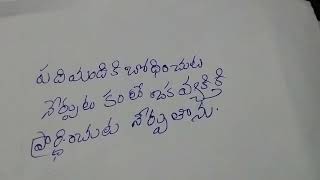 పదిమందికి బోధించుట
నేర్పుట కంటే ఒక వ్యక్తికి
ప్రార్థించుట నేర్పుతాను.